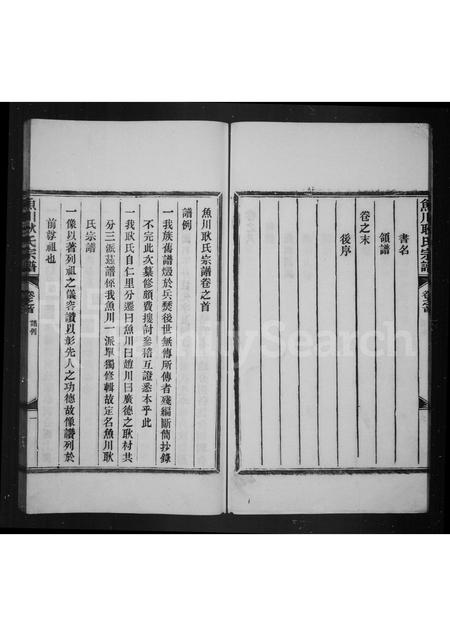 書名
領譜
卷之末
後序
魚川耿氏宗譜 卷首
魚川耿氏宗譜卷之首
譜例
一我族舊譜燬於兵燹後世無傳所傳者殘編斷簡抄錄
不完此次纂修頗費搜討參稽互證悉本乎此
一我耿氏自仁里分遷曰魚川曰趙川曰廣德之耿村共
分三派茲譜係我魚川一派單獨修輯故定名魚川耿
氏宗譜
一像以著列祖之儀容讚以彰先人之功德故像讚列於
前尊祖也
魚川耿氏宗譜 卷首 譜例 一
FamilySearch